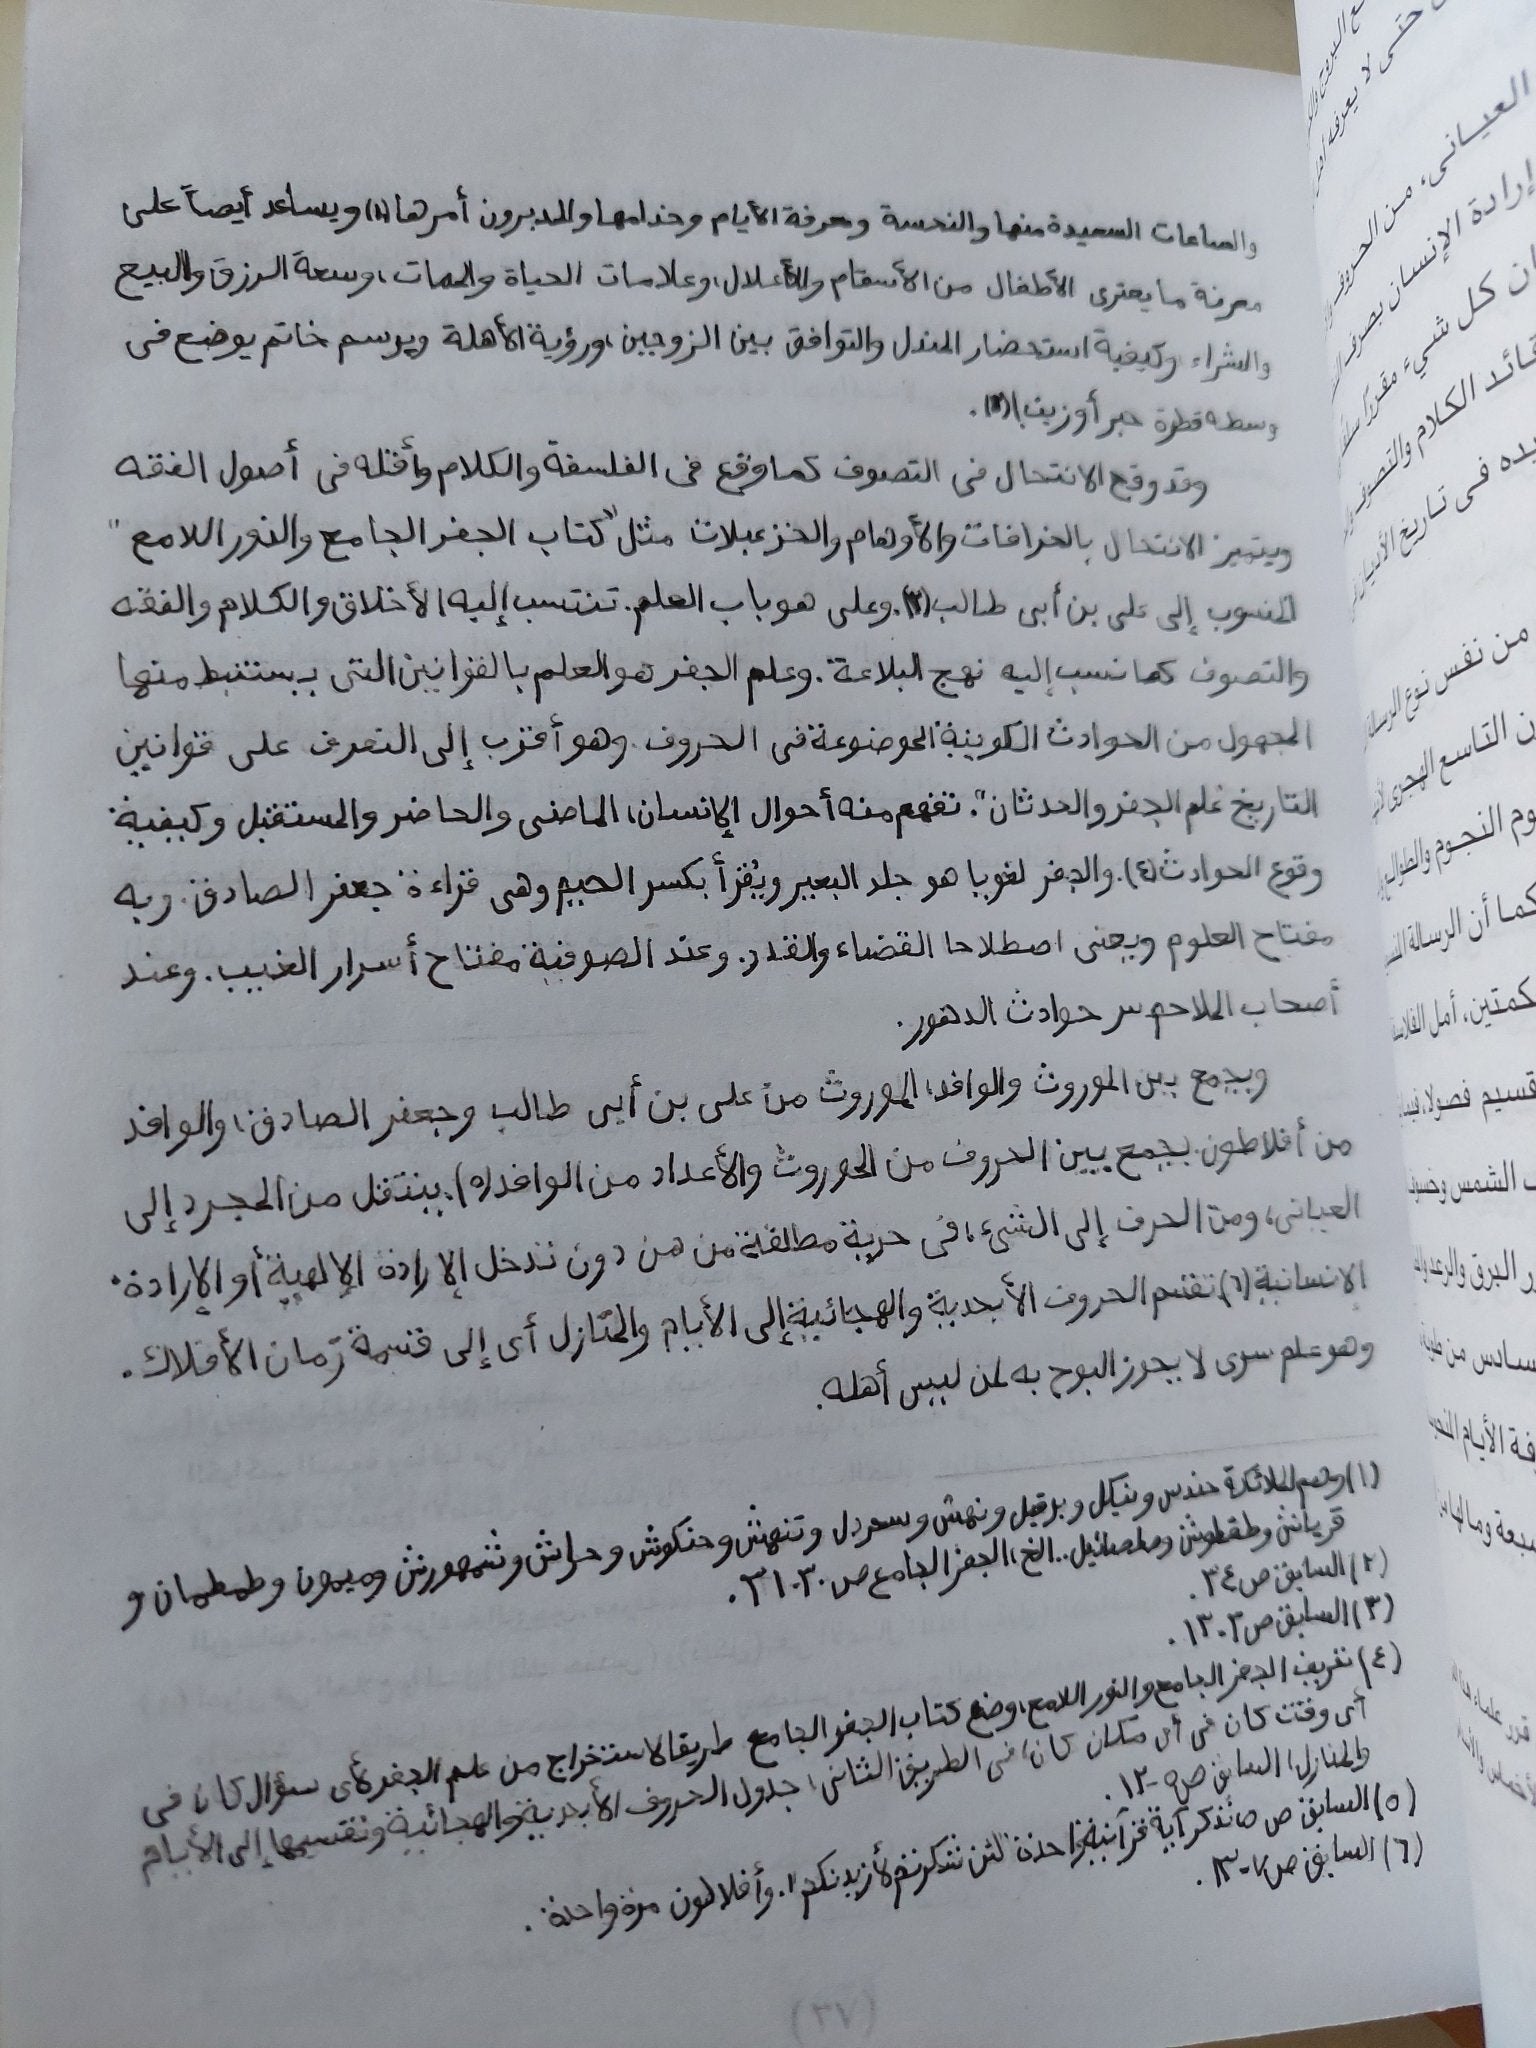 والساعات السعيدة منها والنحسة ومعرفة الأيام وخدامها والمدبرون أمرها(١) ويساعد أيضاً على
معرفة ما يعترى الأطفال من الأسقام والأعلال، وعلامات الحياة والممات، وسعة الرزق والبيع
والشراء وكيفية استحضار المندل والتوافق بين الزوجين، ورؤية الأهلة ويرسم خاتم يوضع فى
وسطه قطرة حبر أو زيت)(٢).
وقد وقع الانتحال فى التصوف كما وقع فى الفلسفة والكلام وأقله فى أصول الفقه
ويتميز الانتحال بالخرافات والأوهام والخزعبلات مثل "كتاب الجفر الجامع والنور اللامع"
المنسوب إلى على بن أبى طالب(٣). وعلى هو باب العلم. تنتسب إليه الأخلاق والكلام والفقه
والتصوف كما نسب إليه نهج البلاغة. وعلم الجفر هو العلم بالقوانين التى يستنبط منها
المجهول من الحوادث الكونية الموضوعة فى الحروف. وهو أقرب إلى التعرف على قوانين
التاريخ علم الجفر والحدثان". تفهم منه أحوال الإنسان، الماضى والحاضر والمستقبل وكيفية
وقوع الحوادث(٤). والجفر لغويا هو جلد البعير ويُقرأ بكسر الجيم وهى قراءة جعفر الصادق. وبه
مفتاح العلوم ويعنى اصطلاحا القضاء والقدر. وعند الصوفية مفتاح أسرار الغيب. وعند
أصحاب الملاحم سر حوادث الدهور.
ويجمع بين الموروث والوافد، الموروث من على بن أبى طالب وجعفر الصادق، والوافد
من أفلاطون. يجمع بين الحروف من الموروث والأعداد من الوافد(٥). ينتقل من المجرد إلى
العيانى، ومن الحرف إلى الشىء، فى حرية مطلقة من هن دون تدخل الإرادة الإلهية أو الإرادة
الإنسانية(٦) تقسم الحروف الأبجدية والهجائية إلى الأيام والمنازل أى إلى قسمة زمان الأفلاك.
وهو علم سرى لا يجوز البوح به لمن ليس أهله.
(١) وهم الملائكة حندس وينكل وبرقيل ونهش وسعردل وتنهش وحنكوش وحراش وشمهورش وميمون وطمطمان و
قريانش وطقطوش وملصائيل.. الخ، الجفر الجامع ص٣٠-٣١.
(٢) السابق ص٣٤.
(٣) السابق ص٢-١٣.
(٤) تعريف الجفر الجامع والنور اللامع، وضع كتاب الجفر الجامع طريقا لاستخراج من علم الجفر لأى سؤال كان فى
أى وقت كان فى أى مكان كان، فى الطريق الثانى، جدول الحروف الأبجدية والهجائية وتقسيمها إلى الأيام
والمنازل، السابق ص٥-١٢.
(٥) السابق ص٥ تذكر آية قرآنية واحدة "لئن شكرتم لأزيدنكم". وأفلاطون مرة واحدة.
(٦) السابق ص٧-١٣.
(٢٧)